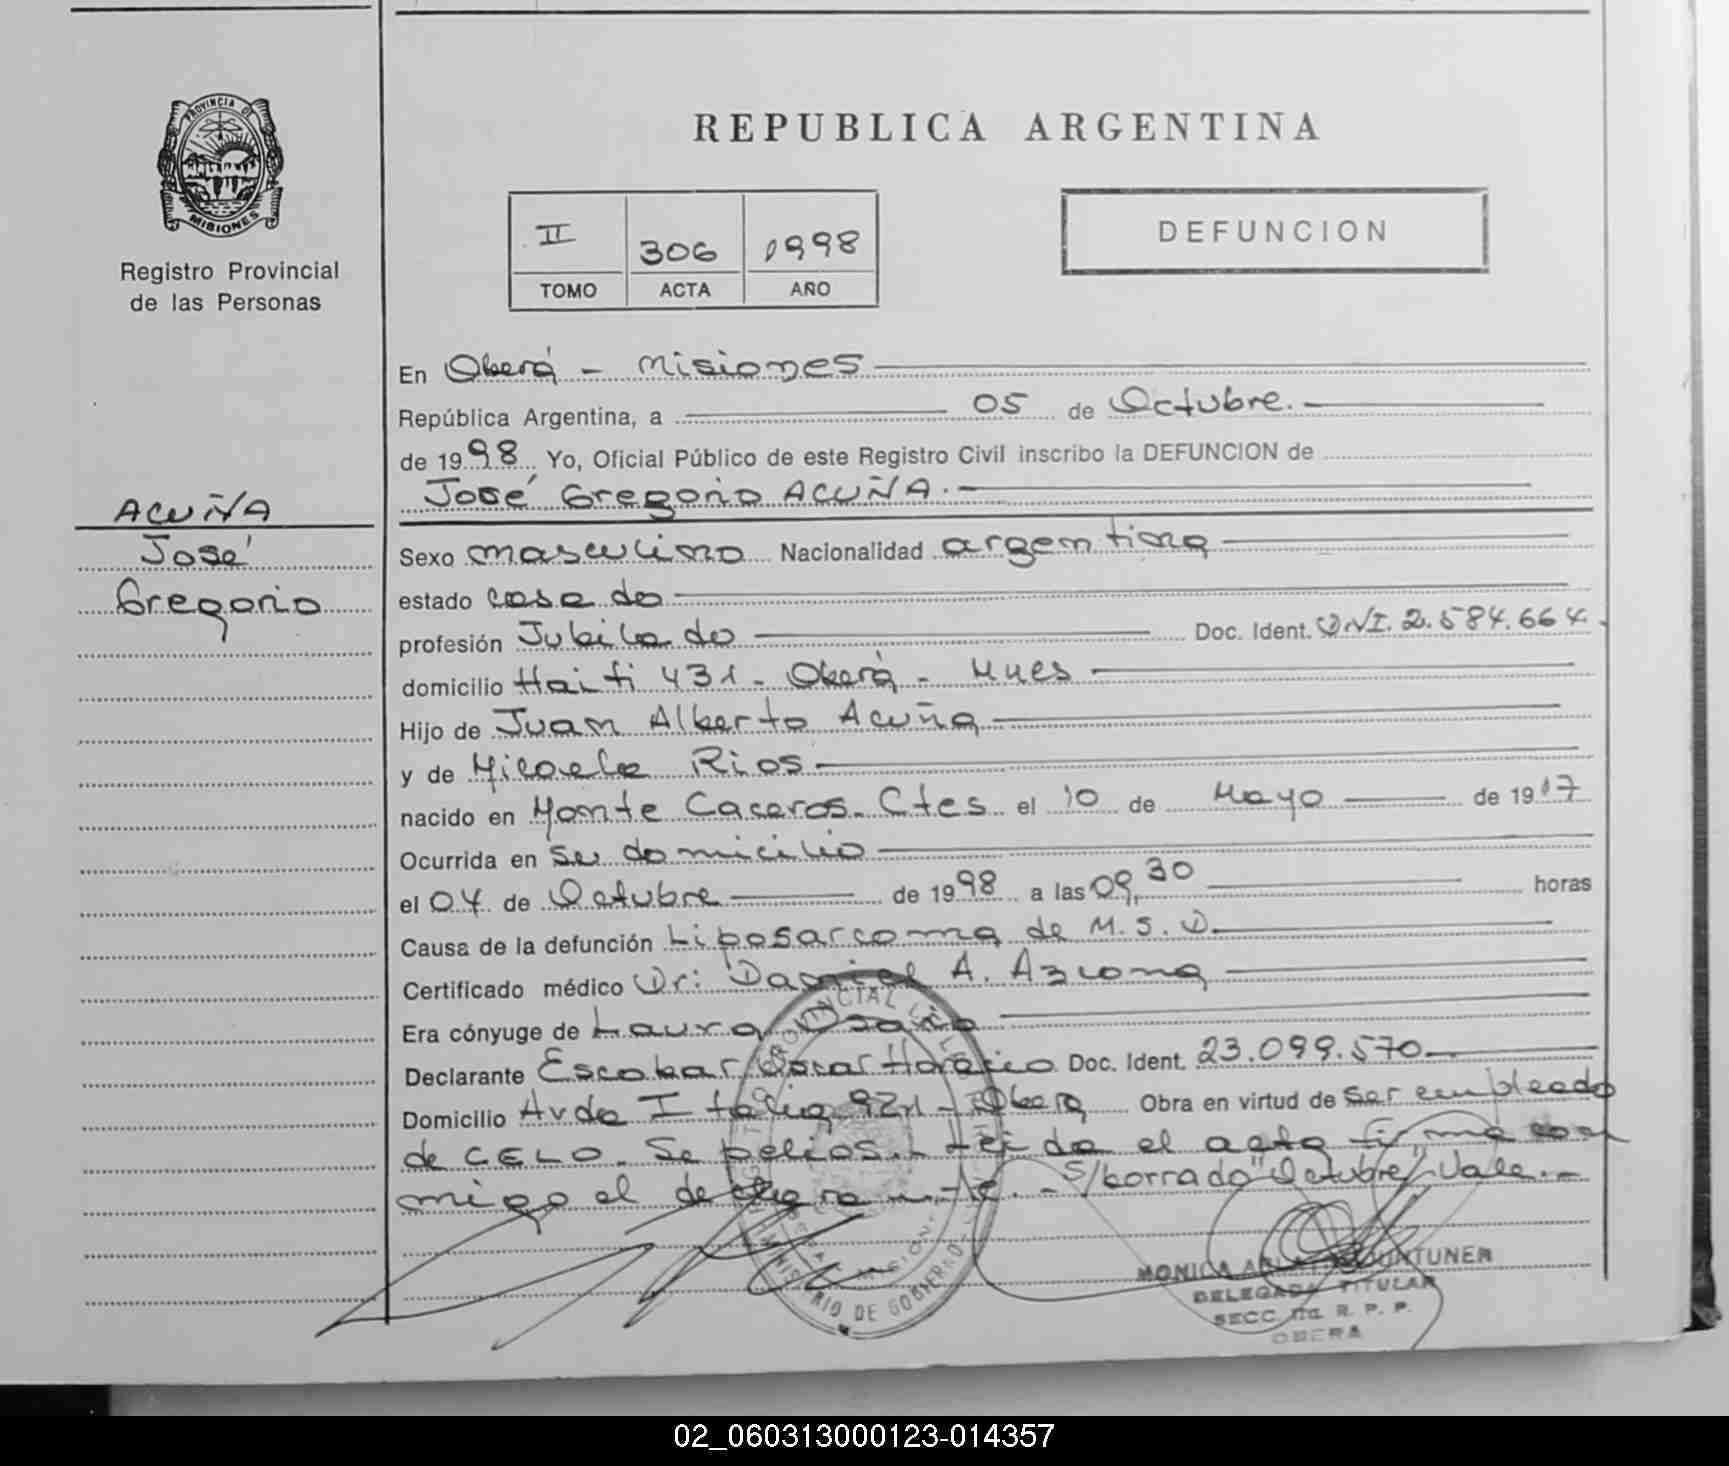 PROVINCIA DE
MISIONES
Registro Provincial
de las Personas
REPUBLICA ARGENTINA
II 306 1998
TOMO ACTA AÑO
DEFUNCION
ACUÑA
José
Gregorio
En Oberá - Misiones
República Argentina, a 05 de Octubre.
de 1998 Yo, Oficial Público de este Registro Civil inscribo la DEFUNCION de
José Gregorio ACUÑA.
Sexo masculino Nacionalidad argentina
estado casado
profesión Jubilado Doc. Ident. DNI. 2.584.664.
domicilio Haiti 431 - Oberá - Mnes
Hijo de Juan Alberto Acuña
y de Micaela Rios.
nacido en Monte Caceros. Ctes el 10 de Mayo de 1917
Ocurrida en su domicilio
el 04 de Octubre de 1998 a las 09,30 horas
Causa de la defunción Liposarcoma de M.S.D.
Certificado médico Dr: Daniel A. Azcona
Era cónyuge de Laura
Declarante Escobar Oscar Horacio Doc. Ident. 23.099.570
Domicilio Avda Italia 921 - Oberá Obra en virtud de ser empleado
de CELO. Se Leida el acta firma con
migo el declarante. - S/borrado "Octubre" Vale. -
MINISTERIO DE GOBIERNO
MONICA
DELEGADA TITULAR
SECC R. P. P.
OBERA
02_060313000123-014357